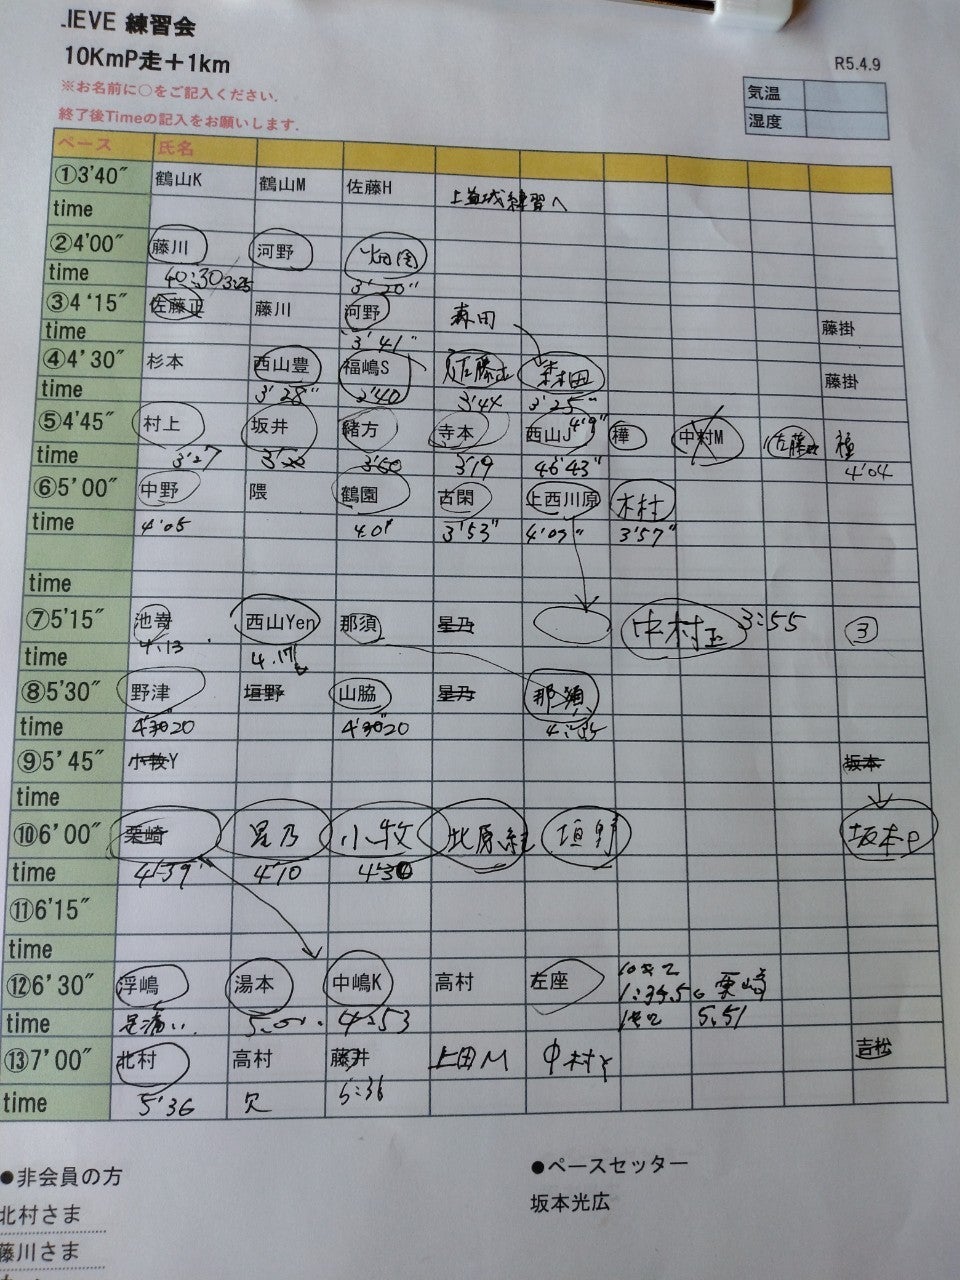 JEVE 練習会
10KmP走＋1km
R5.4.9
※お名前に○をご記入ください.
終了後Timeの記入をお願いします.
気温
湿度
ペース 氏名
①3'40" 鶴山K 鶴山M 佐藤H 上益城練習へ
time
②4'00" 藤川 河野 畑園
time 40:30 3:25 3'20"
③4'15" 佐藤正 藤川 河野 森田 藤掛
time 3'41"
④4'30" 杉本 西山豊 福嶋S 佐藤正 森田 藤掛
time 3'28" 3'40 3'44 3'25"
⑤4'45" 村上 坂井 緒方 寺本 西山J 4'9" 樺 中村M 佐藤 樺
time 3'27 3'50 3'19 46'43" 4'04
⑥5'00" 中野 隈 鶴園 古閑 上西川原 木村
time 4'05 4.01 3'53" 4'07" 3'57"
time
⑦5'15" 池嵜 西山Yen 那須 星乃 中村玉 3:55 ③
time 4.13 4.17
⑧5'30" 野津 垣野 山脇 星乃 那須
time 4'30"20 4'30"20
⑨5'45" 小牧Y 坂本
time
⑩6'00" 栗崎 星乃 小牧 北原 垣野 坂本P
time 4'39" 4'10 4'30
⑪6'15"
time
⑫6'30" 浮嶋 湯本 中嶋K 高村 左座 1:34.56 栗崎
time 足痛い. 4:53 5.51
⑬7'00" 北村 高村 藤井 上田M 中村 吉松
time 5'36 欠 5:36
●非会員の方
●ペースセッター
北村さま
坂本光広
藤川さま